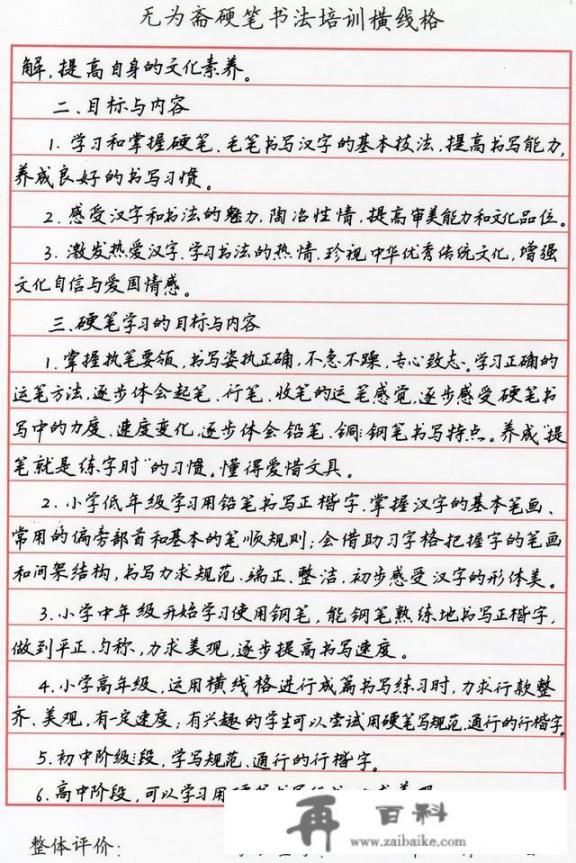 无为斋硬笔书法培训横线格
解,提高自身的文化素养。
二、目标与内容
1. 学习和掌握硬笔、毛笔书写汉字的基本技法,提高书写能力,
养成良好的书写习惯。
2. 感受汉字和书法的魅力,陶冶性情,提高审美能力和文化品位。
3. 激发热爱汉字、学习书法的热情,珍视中华优秀传统文化,增强
文化自信与爱国情感。
三、硬笔学习的目标与内容
1. 掌握执笔要领,书写姿执正确,不急不躁,专心致志。学习正确的
运笔方法,逐步体会起笔、行笔、收笔的运笔感觉,逐步感受硬笔书
写中的力度、速度变化,逐步体会铅笔、铜钢笔书写特点。养成“提
笔就是练字时”的习惯。懂得爱惜文具。
2. 小学低年级学习用铅笔书写正楷字,掌握汉字的基本笔画、
常用的偏旁部首和基本的笔顺规则;会借助习字格把握字的笔画
和间架结构,书写力求规范、端正、整洁,初步感受汉字的形体美。
3. 小学中年级开始学习使用钢笔,能钢笔熟练地书写正楷字,
做到平正、匀称,力求美观,逐步提高书写速度。
4. 小学高年级,运用横线格进行成篇书写练习时,力求行款整
齐、美观,有一定速度;有兴趣的学生可以尝试用硬笔写规范、通行的行楷字。
5. 初中阶级段,学写规范、通行的行楷字。
6. 高中阶段,可以学习用
整体评价:
再百科
www.zaibaike.com